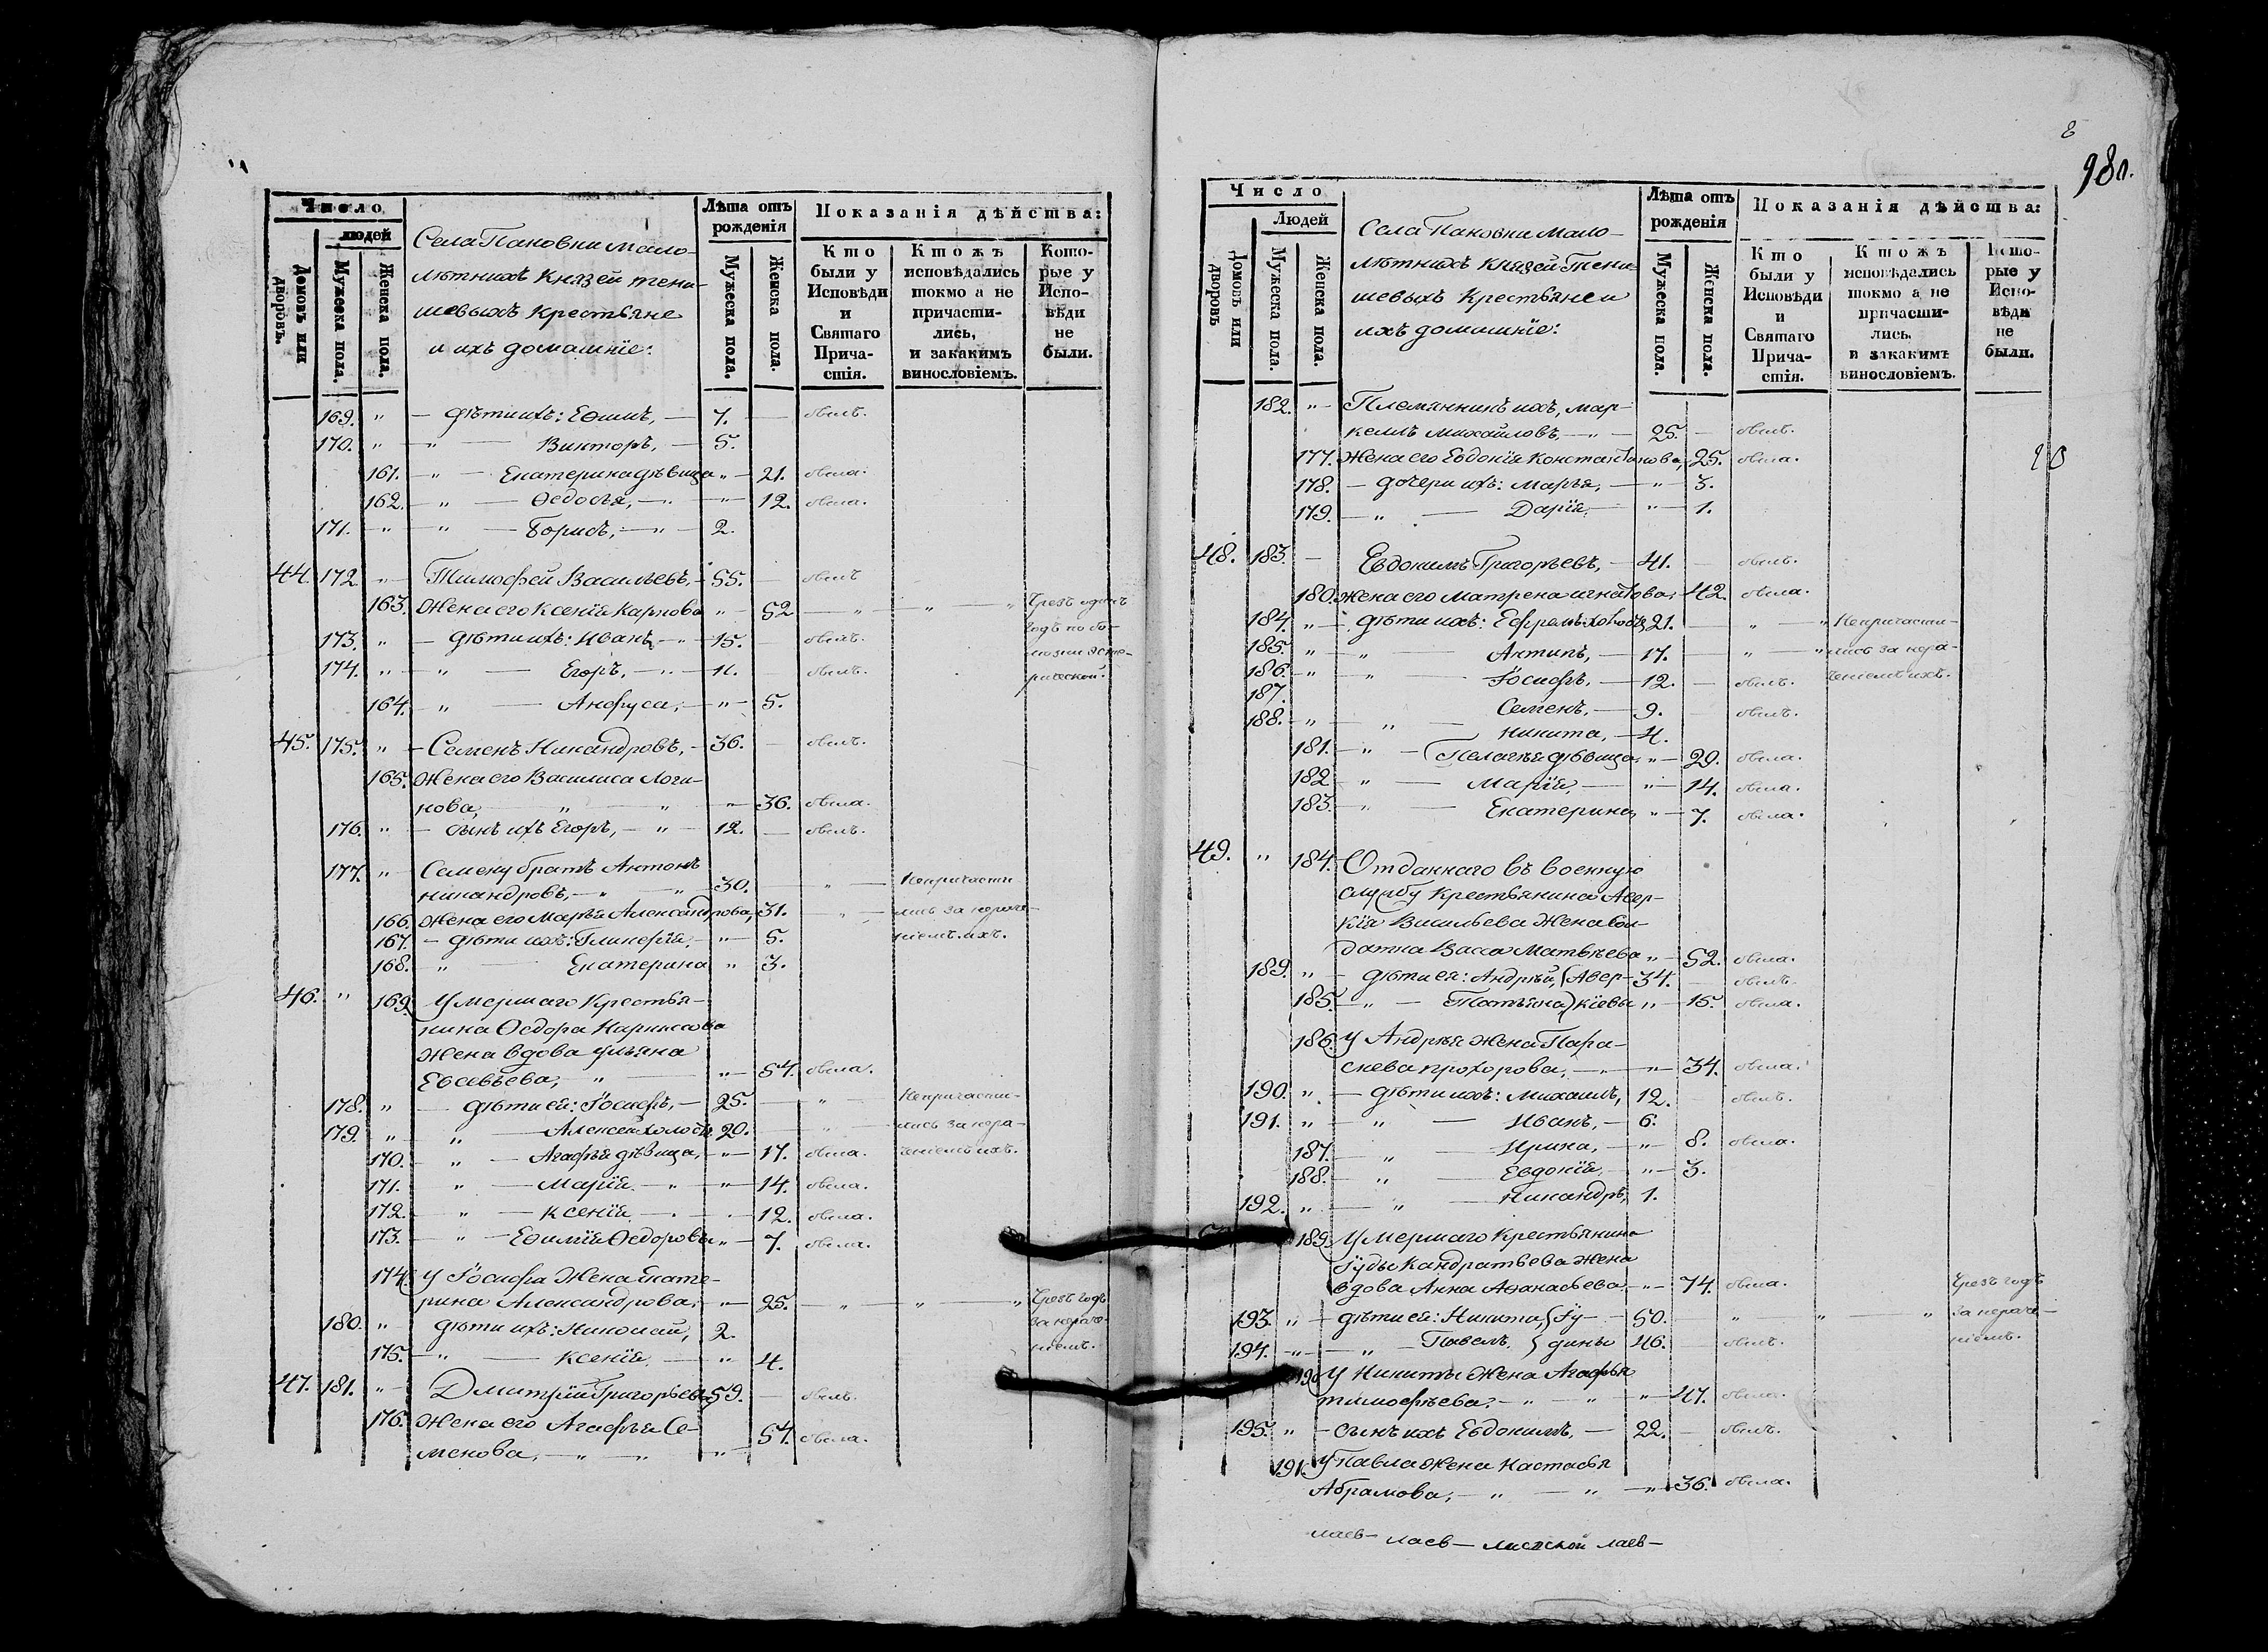 980.
Число
людей
Домовъ или дворовъ.
Мужеска пола.
Женска пола.
Села Пановки мало-
лѣтнихъ Князей тени-
шевыхъ Крестьяне
и ихъ домашніе:
Лѣта отъ рожденія
Мужеска пола.
Женска пола.
Показанія дѣйства:
Кто были у Исповѣди и Святаго Прича-стія.
Ктожъ исповѣдались токмо а не причасти-лись, и закакимъ винословіемъ.
Кото-рые у Испо-вѣди не были.
169. „ — дѣти ихъ: Ефимъ, — 7. — былъ.
170. „ „ — Викторъ, — 5.
161. — „ — Екатерина дѣвица „ — 21. была.
162. — „ — Ѳедосья, — „ — 12. была.
171. — „ „ — Борисъ, — „ — 2.
44. 172. „ Тимофей Васильевъ, — 55. — былъ
163. Жена его Ксенія Карпова „ — 52 — „ — „ — „ Чрезъ одинъ
годъ по бо-
173. „ — дѣти ихъ: Иванъ, — „ — 15. — былъ.
174. „ „ — Егоръ, — „ — 11. — былъ.
164. — „ — Анфуса, — „ — 5.
45. 175. „ — Семенъ Никандровъ, — 36. — былъ.
165. Жена его Василиса Логи-
нова, „ — „ — „ — 36. была.
176. „ — сынъ ихъ Егоръ, — „ — 12. — былъ.
177. „ — Семену братъ Антонъ
никандровъ, — „ — „ — 30. — „ — Непричасти
166. Жена его Марья Александрова, 31. — „ — лись за нераче-
167. — дѣти ихъ: Гликерія, — „ — 5. ніемъ ихъ.
168. „ — Екатерина „ 3.
46. „ 169. Умершаго Крестья-
нина Ѳедора Наркисова
Жена вдова Ульяна
Евсевьева, „ — „ — 54. была.
178. „ — дѣти ея: Іосифъ, — 25. — „ — Непричасти-
179. „ „ — Алексей холостъ 20. — „ — лись за нера-
170. — „ — Агафья дѣвица, — „ — 17. была. ченіемъ ихъ.
171. „ — Марія — „ — „ — 14. была.
172. „ — Ксенія — 12. была.
173. — „ — Ефимія Ѳедоровы „ — 7. была.
174. У Іосифа Жена Екате-
рина Александрова, — „ — 25. — „ — „ — „ Чрезъ годъ
180. „ дѣти ихъ: Николай, 2. за нераче-
175. — „ — Ксенія — „ 4. ніемъ.
47. 181. „ Дмитрій Григорьевъ 59. — былъ.
176. Жена его Агафья Се-
менова, — „ — „ — „ — 54. была.
Число
Людей
Домовъ или дворовъ
Мужеска пола.
Женска пола.
Села Пановки Мало-
лѣтнихъ Князей Тени-
шевыхъ Крестьяне и
ихъ домашніе:
Лѣта отъ рожденія
Мужеска пола.
Женска пола.
Показанія дѣйства:
Кто были у Исповѣди и Святаго Прича-стія.
Ктожъ исповѣдались токмо а не причасти-лись, и закакимъ винословіемъ.
Кото-рые у Испо-вѣди не были.
182. „ — Племянникъ ихъ, Мар-
келлъ Михайловъ, — „ — 25. — былъ.
177. Жена его Евдокія Константинова, 25. была.
178. — дочери ихъ: Марья, — „ — 3.
179. — „ — Дарія, — „ — 1.
48. 183. — Евдокимъ Григорьевъ, — 41. — былъ.
180. Жена его Матрена игнатова, 42. была.
184. „ — дѣти ихъ: Ефремъ холостъ, 21. — „ — „ Непричасти-
185. „ „ — Антипъ, — 17. — „ — „ лись за нера-
186. „ „ — Іосифъ, — 12. — былъ. ченіемъ ихъ.
187. Семенъ, — 9. былъ.
188. „ — „ — Никита, — 4.
181. — „ — Пелагея дѣвица „ — 20. была.
182 „ — Марія, — „ — 14. была.
183. — „ — Екатерина „ — 7. была.
49. „ 184. Отданнаго въ военную
службу Крестьянина Авер-
кія Васильева Жена сол-
датка Васса Матвѣева „ — 52. была.
189. „ — дѣти ея: Андрей, (Авер- 34. — былъ.
185. „ — Татьяна) кіевы „ — 15. была.
186. У Андрея Жена Пара-
скева прохорова, — „ — „ — 34. была.
190. „ — дѣти ихъ: Михаилъ, 12. — былъ.
191. „ — „ — Иванъ, — 6.
187. — „ — Ирина, — „ — 8. была.
188. — „ — Евдокія, — „ — 3.
192. „ — „ — Никандръ, 1.
189. Умершаго Крестьянина
Іуды Кандратьева Жена
вдова Анна Афанасьева — „ — 74. была. Чрезъ годъ
193. „ — дѣти ея: Никита, { Іу- — 50. — „ — „ — „ за нераче-
194. — „ — „ — Павелъ. } дины 46. — былъ. ніемъ.
190 У Никиты Жена Агафья
тимофѣева, — „ — „ — „ — 47. была.
195. „ — сынъ ихъ Евдокимъ, — 22. — былъ.
191. У Павла Жена Настасья
Абрамова, — „ — „ — „ — 36. была.